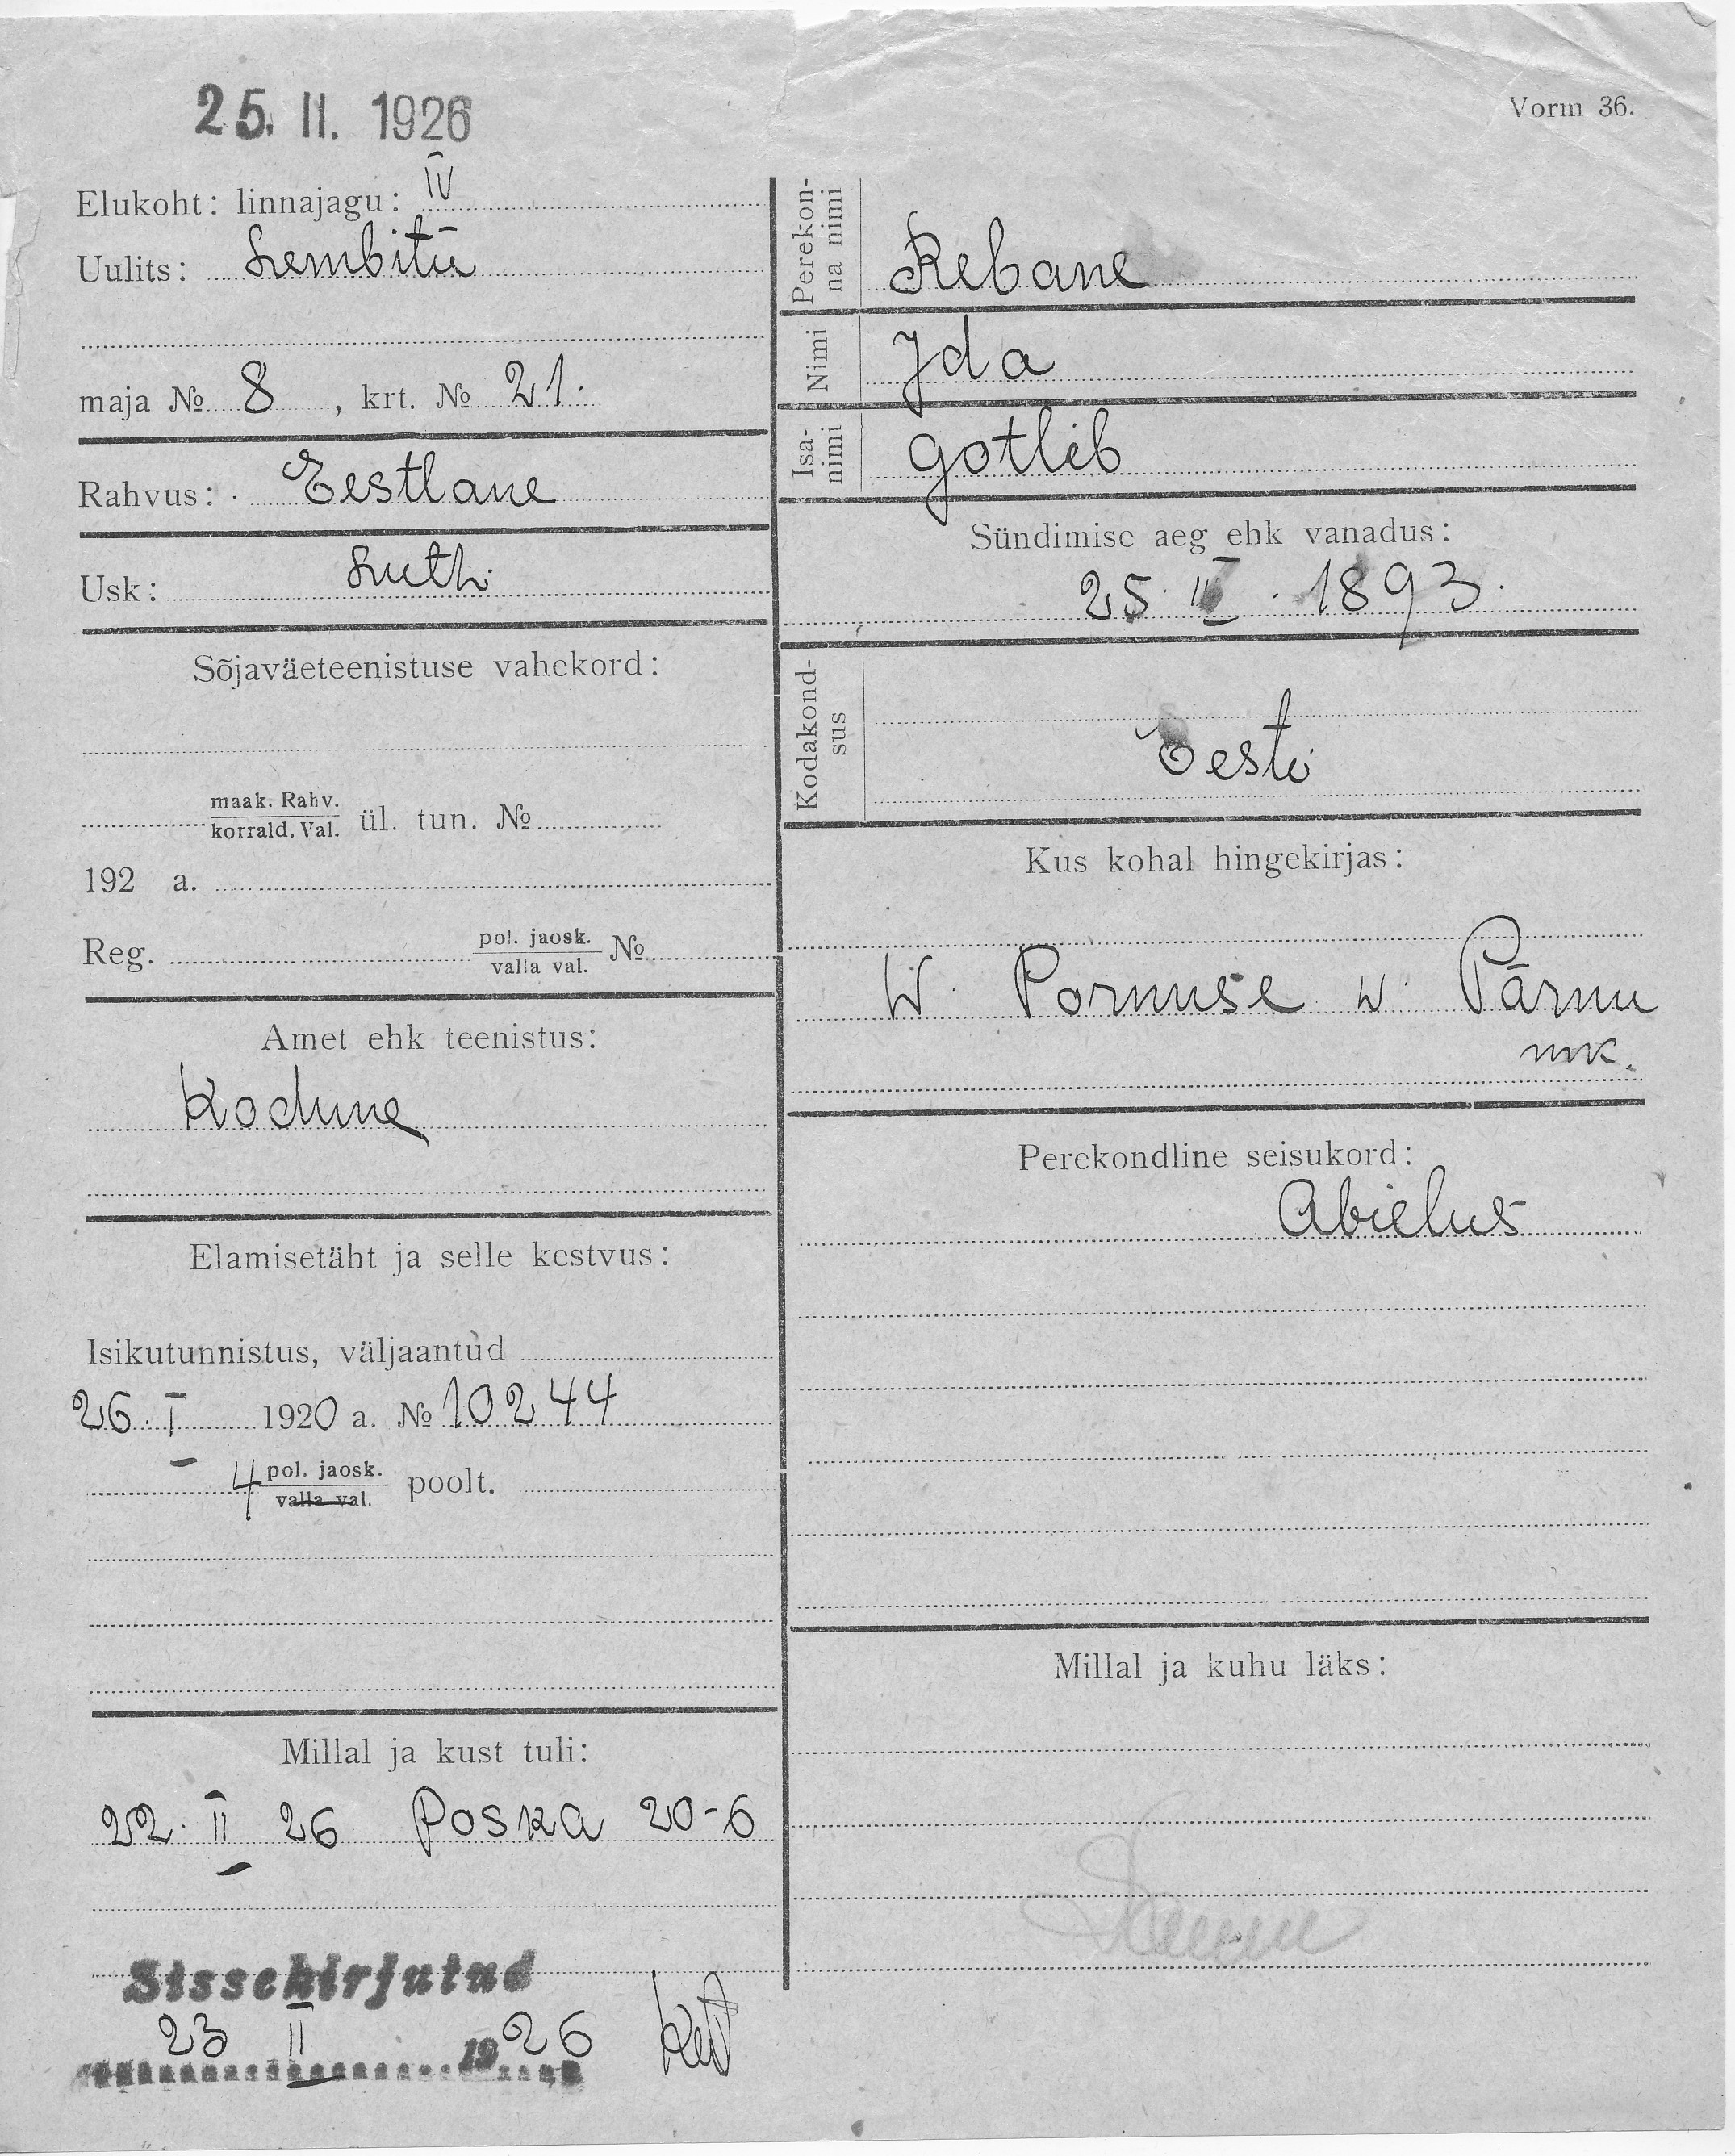 25. II. 1926
Vorm 36.
Elukoht: linnajagu: IV
Uulits: Lembitu
maja № 8 , krt. № 21.
Rahvus: Eestlane
Usk: Luth.
Sõjaväeteenistuse vahekord:
maak. Rahv.
korrald. Val. ül. tun. №
192 a.
Reg. pol. jaosk. №
valla val.
Amet ehk teenistus:
Kodune
Elamisetäht ja selle kestvus:
Isikutunnistus, väljaantud
26. I 1920 a. № 10244
4 pol. jaosk. poolt.
valla val.
Millal ja kust tuli:
22. II 26 Poska 20-6
Sissekirjutud
23 II 1926
Perekonna nimi
Rebane
Nimi
Jda
Isa-
nimi
Gotlib
Sündimise aeg ehk vanadus:
25. 1893.
Kodakond-
sus
Eesti
Kus kohal hingekirjas:
W. Pornuse w. Pärnu
mk.
Perekondline seisukord:
Abielus
Millal ja kuhu läks: